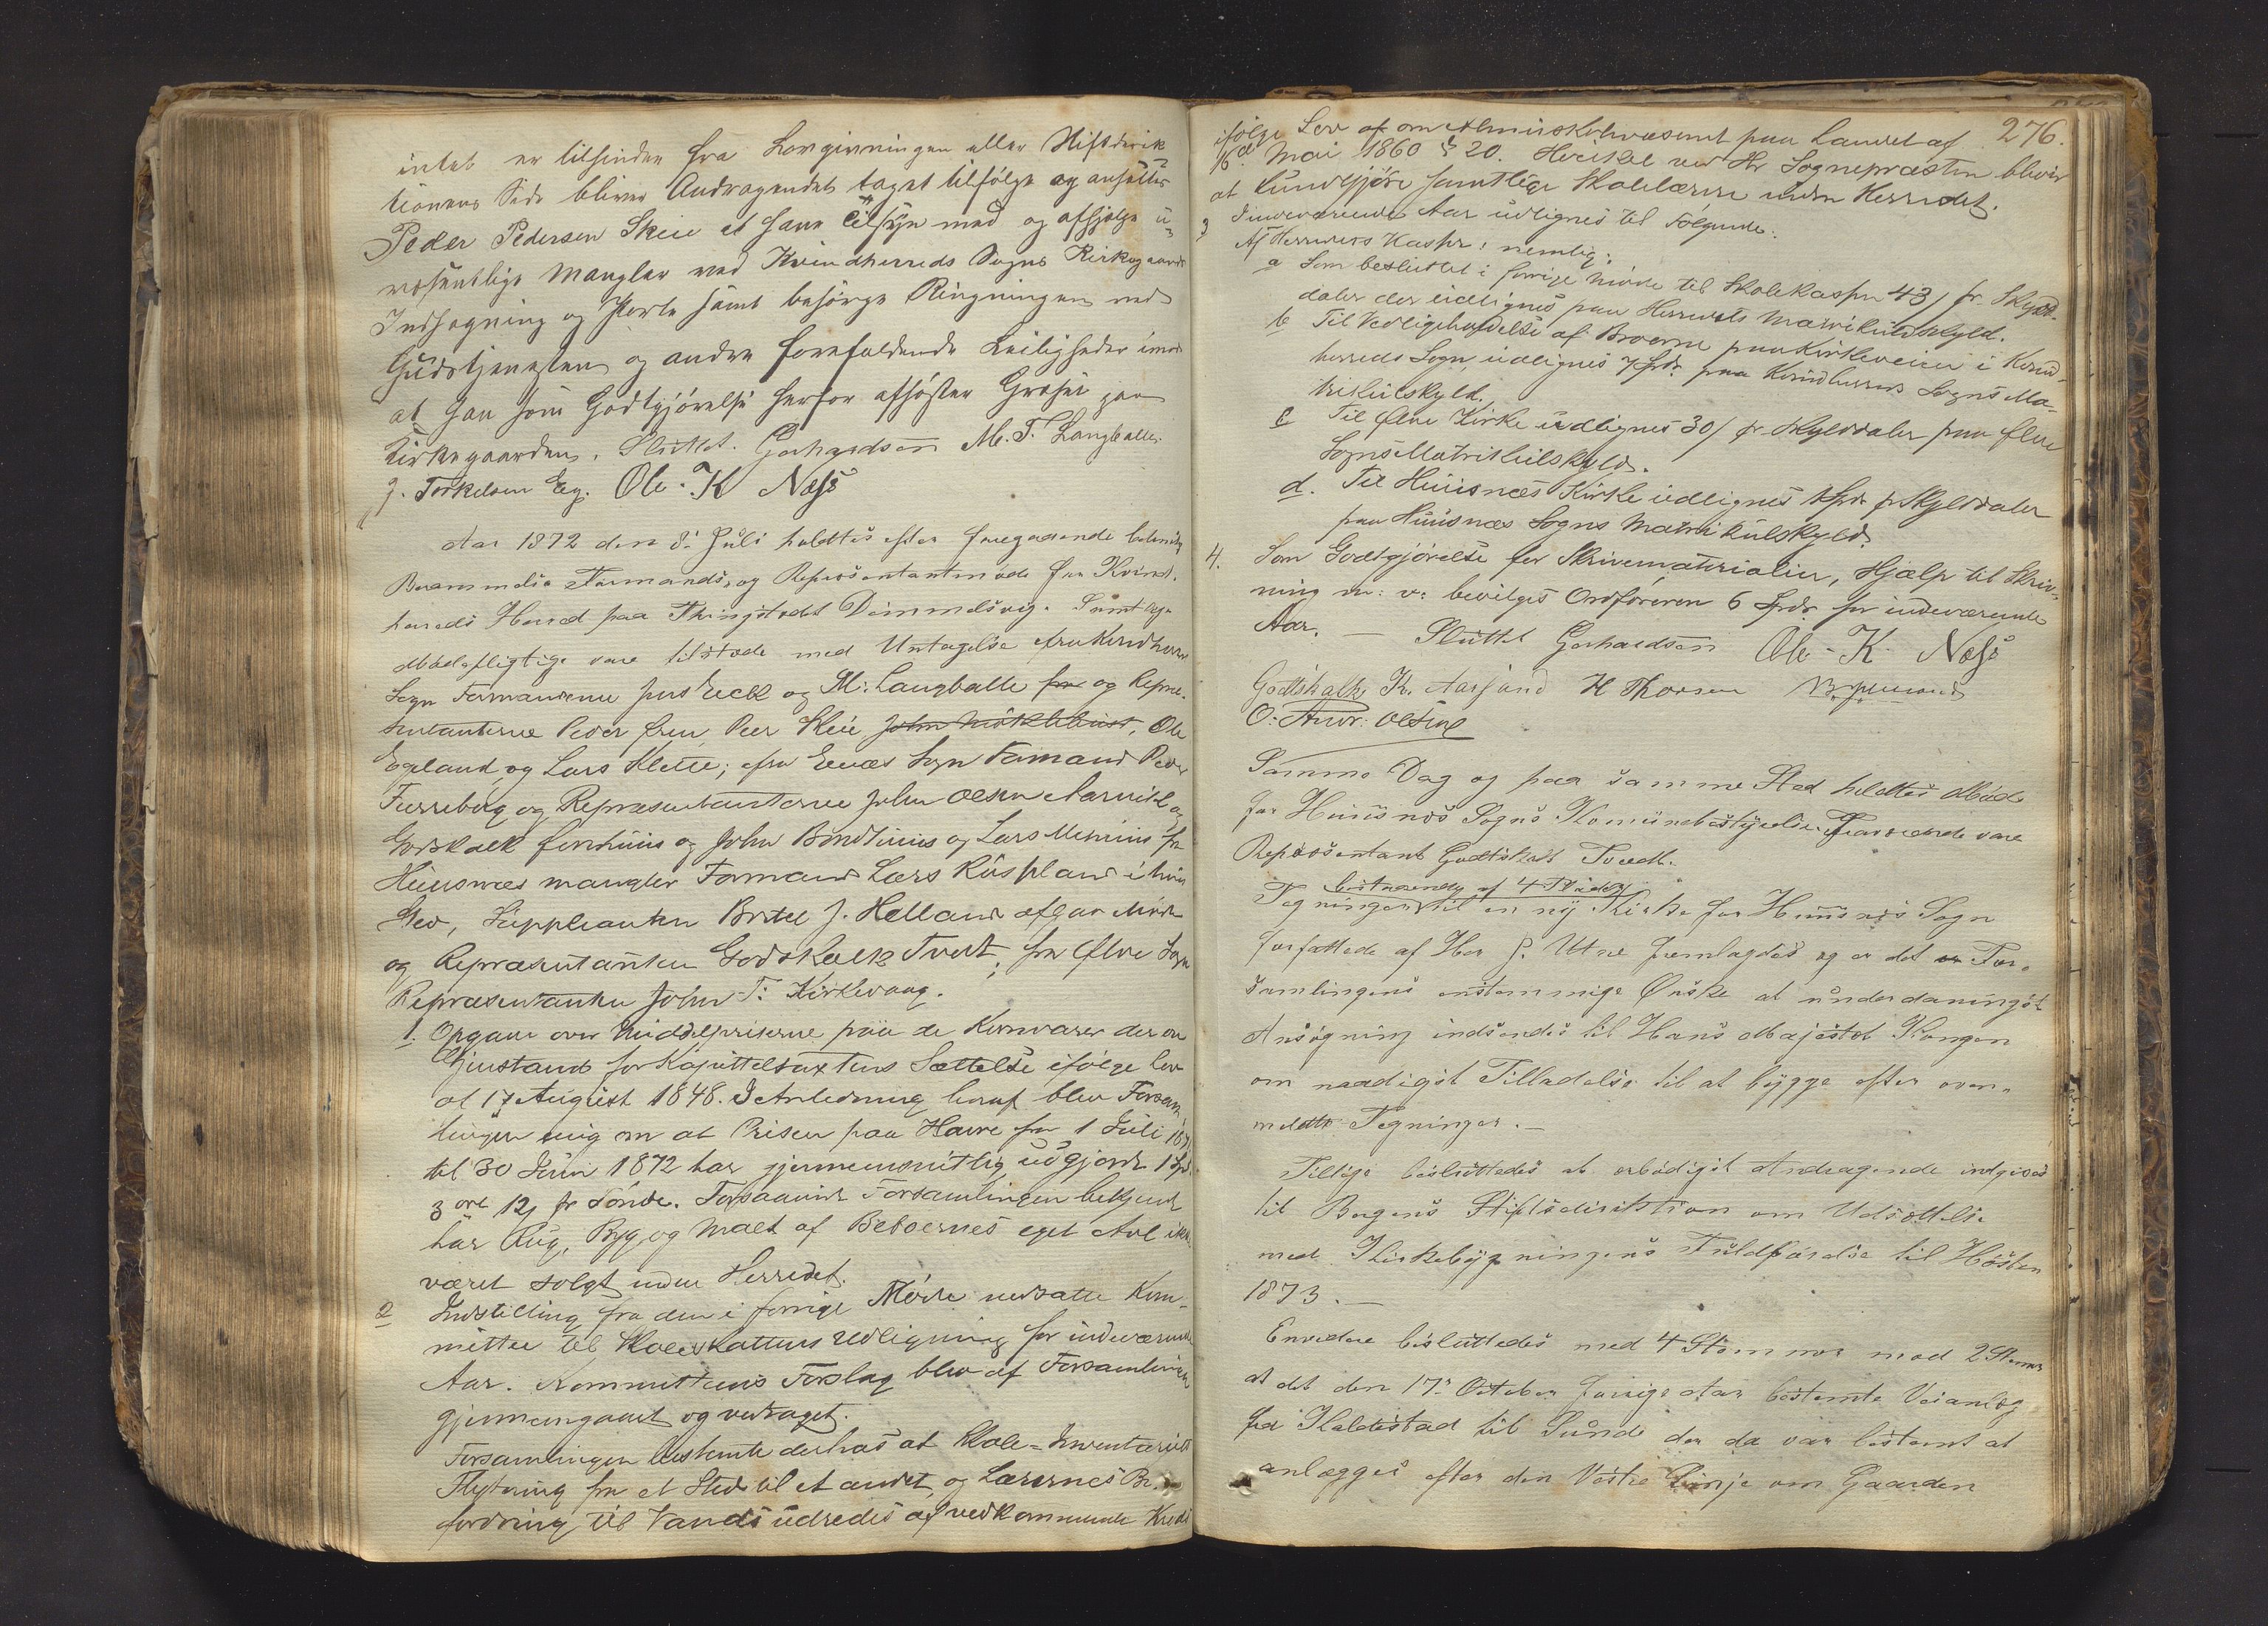 intet er tilhinder fra Lovgivningen eller Stiftdirek
tionens Side bliver Andragendet taget tilfölge og ansættes
Peder Pedersen Skeie at have Tilsyn med og afhjelpe u-
væsentlige Mangler ved Kvindherreds Sogns Kirkegaards
Indhegning og Porte samt besörge Ringningen ved
Gudstjenesten og andre forefaldende Leiligheder imod
at han som Godtgjörelse herfor afhöster Græset paa
Kirkegaarden. Sluttet. Gerhardsen M. T. Langballe.
J. Torkelsen Eeg. Ole. K Næss
Aar 1872 den 8de Juli holdtes efter foregaaende lovlig
Berammelse Formands, og Repræsentantmöde for Kvind-
herreds Herred paa Thingstedet Dimmelsvig. Samtlige
Mödepligtige vare tilstede med Undtagelse fra Kvindherreds
Sogn Formændene Just Eeck og M: Langballe og Repræ-
sentanterne Peder Peer Skeie John Möklebust, Ole
Egeland og Lars Klette; fra Enæs Sogn Formand Peder
Furreberg og Repræsentanterne John Olsen Aarvik og
Godskalk og John Bondhuus og Lars Mehuus fra
Huusnæs mangler Formand Lars Röspland i hvis
Sted, Suppleanten Brtel J. Helland afgav Möde
og Repræsentanten Godskalk Tvedt, fra Ølve Sogn
Repræsentanten John T: Kirkevaag.
1. Opgave over Middelpriserne paa de Kornvarer der ere
Gjenstand for Kapitteltaxtens Sættelse ifölge Lov
af 17 August 1848. I Anledning heraf blev Forsam
lingen enig om at Prisen paa Havre fra 1 Juli 1871
til 30 Juni 1872 har gjennemsnitlig udgjort 1 Spd
3 ort 12 s pr Tönde. Forsaavidt Forsamlingen bekjendt
har Rug, Byg og Malt af Beboernes eget Avl ikke
været solgt inden Herredet.
2 Indstilling fra den i forrige Möde nedsatte Kom-
mittee til Skoleskattens Udligning for indeværende
Aar. Kommitteens Forslag blev af Forsamlingen
gjennemgaaet og vedtaget.
Forsamlingen bestemte derhos at Skole-Inventariets
Flytning fra et Sted til et andet, og Lærernes Be-
fordring til Vands udredes af vedkommende Kreds
276.
ifölge Lov af om Almueskolevæsenet paa Landet af
16de Mai 1860 § 20. Hvilket ved Hr Sognepræsten bliver
at kundgjöre samtlige Skolelærere inden Herredet.
3 Indeværende Aar udlignes til Følgende:
Af Herredets Kasse, nemlig:
a Som besluttet i forrige Möde til Skolekassen 43 s pr. Skyld-
daler der udlignes paa Herredets Matrikulskyld.
b Til Vedligeholdelse af Broerne paa Kirkeveien i Kvind-
herreds Sogn, udlignes 7 Spdr. paa Kvindherreds Sogns Ma-
trikulskyld.
c Til Ølve Kirke udlignes 30 s pr. Skylddaler paa Ølve
Sogns Matrikulskyld.
d. Til Huusnæs Kirke udlignes 1 Spd. pr Skylddaler
paa Huusnæs Sogns Matrikulskyld.
4. Som Godtgjörelse for Skrivematerialier, Hjælp til Skriv-
ning m: v: bevilges Ordföreren 6 Spdr for indeværende
Aar. — Sluttet Gerhardsen Ole - K. Næss
Godtskalk K. Aarsand H Thorsen
O: Andr: Olsen
Samme Dag og paa samme Sted holdtes Möde
for Huusnæs Sogns Komunebestyrelse. Fraværende vare
Repræsentant Godtskalk Tvedt.
bestaaende af 4 Blade
Tegninger til en ny Kirke for Huusnæs Sogn
forfattede af Her J. Utne fremlagdes og er det For-
samlingens enstemmige Ønske at underdanigst
Ansögning indsendes til Hans Majestæt Kongen
om naadigst Tilladelse til at bygge efter oven-
meldte Tegninger. —
Tillige besluttedes at erbödigst Andragende indgives
til Bergens Stiftsdirektion om Udsættelse
med Kirkebygningens Fuldförelse til Hösten
1873. —
Enviđere besluttedes med 4 Stemmer mod 2 Stemmer
at det den 17de October forrige Aar bestemte Veianlæg
fra Haldestad til Sunde der da var bestemt at
anlægges efter den Vestre Linje om Gaarden